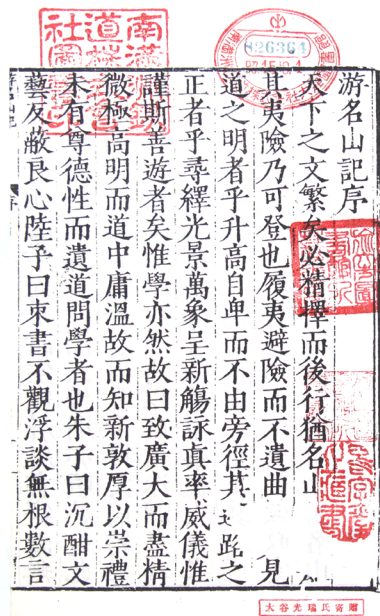 游名山記序
天下之文繁矣必精擇而後行猶名山
其夷險乃可登也履夷避險而不遺曲見
道之明者乎升高自卑而不由旁徑其路之
正者乎尋繹光景萬象呈新觴詠真率威儀惟
謹斯善遊者矣惟學亦然故曰致廣大而盡精
微極高明而道中庸溫故而知新敦厚以崇禮
未有尊德性而遺道問學者也朱子曰沉酣文
藝反蔽良心陸子曰束書不觀浮談無根數言
826364
大谷光瑞氏寄贈